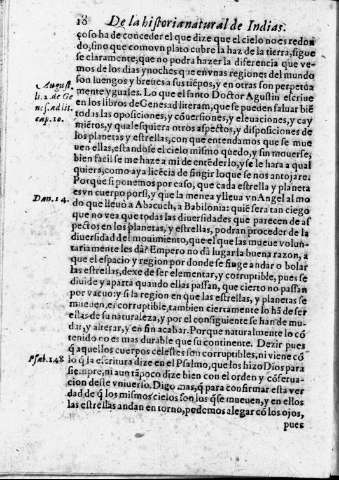 18 De la historia natural de Indias.
çoso ha de conceder el que dize que el cielo no es redon
do, sino que como vn plato cubre la haz de la tierra, sigue
se claramente, que no podra hazer la diferencia que ve-
mos de los dias y noches que en vnas regiones del mundo
son luengos y breues a sus tiẽpos, y en otras son perpetua
mente yguales. Lo que el santo Doctor Agustin escriue
en los libros de Genes. ad literam, que se pueden saluar biẽ
todas las oposiciones, y cõuersiones, y eleuaciones, y cay
miẽtos, y qualesquiera otros aspectos, y disposiciones de
los planetas y estrellas, con que entendamos que se mue
uen ellas, estandose el cielo mismo quedo, y sin mouerse,
bien facil se me haze a mi de entẽderlo, y se le hara a qual
quiera, como aya licẽcia de fingir lo que se nos antojare.
Porque si ponemos por caso, que cada estrella y planeta
es vn cuerpo por si, y que la menea y lleua vn Angel al mo
do que lleuò a Abacuch, a Babilonia: quiẽ sera tan ciego
que no vea que todas las diuersidades que parecen de as
pectos en los planetas, y estrellas, podran proceder de la
diuersidad del mouimiento, que el que las mueue volun-
tariamente les dà? Empero no dà lugar la buena razon, a
que el espacio y region por donde se finge andar o bolar
las estrellas, dexe de ser elementar, y corruptible, pues se
diuide y aparta quando ellas passan, que cierto no passan
por vacuo: y si la region en que las estrellas, y planetas se
mueuen, es corruptible, tambien ciertamente lo hã de ser
ellas de su naturaleza, y por el consiguiente se han de mu-
dar, y alterar, y en fin acabar. Porque naturalmente lo cõ
tenido no es mas durable que su continente. Dezir pues
q̃ aquellos cuerpos celestes son corruptibles, ni viene cõ
lo q̃ la escritura dize en el Psalmo, que los hizo Dios para
siempre, ni aun tãpoco dize bien con el orden y cõserua-
cion deste vniuerso. Digo mas, q̃ para confirmar esta ver
dad, de q̃ los mismos cielos son los q̃ se mueuen, y en ellos
las estrellas andan en torno, podemos alegar cõ los ojos,
pues
August.
li. 2. de Ge
nes. ad lit.
cap. 10.
Dan. 14.
Psal. 148